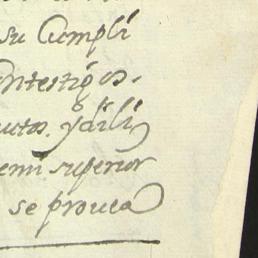 su Cumpli
ontestigos.
autos. y dili
emi superior
se prouea